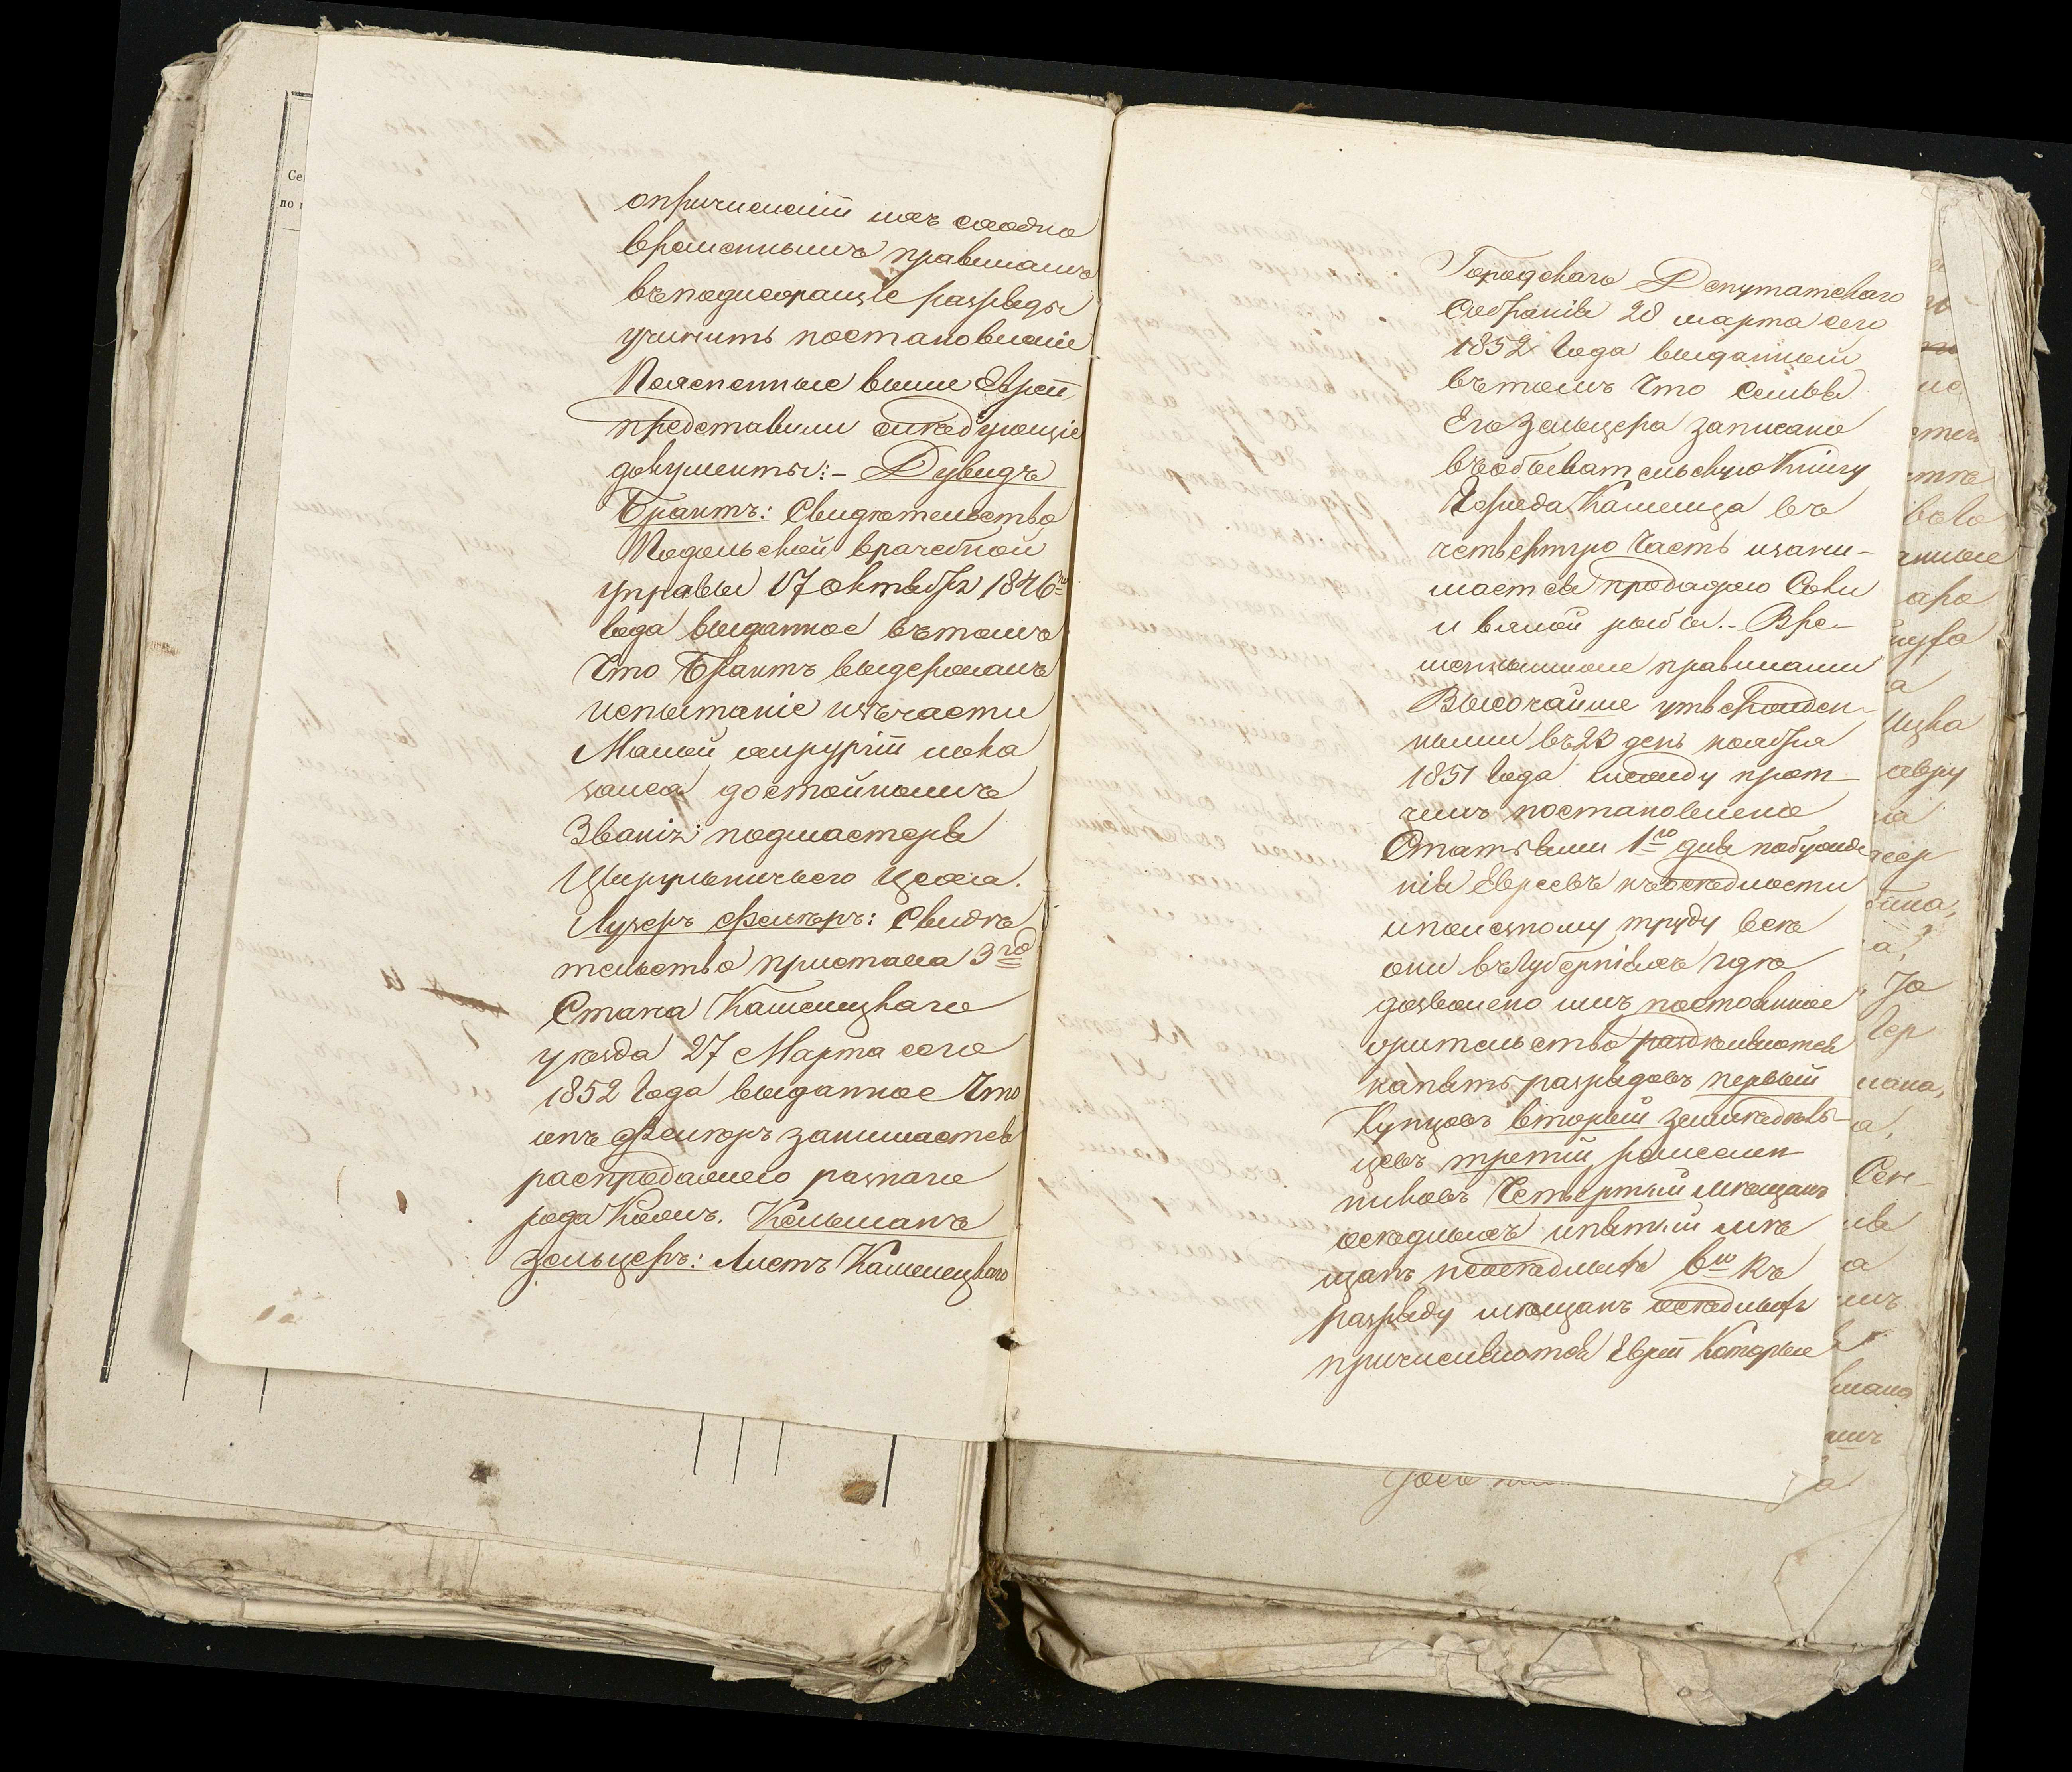 опричисленіи ихъ сходно
временнымъ правиламъ
въ подлежащіе разряды
учинить постановленіе
Поясненные выше Евреи
представили слѣдующіе
документы: – Дувидъ
Брантъ: Свидѣтельство
Подольской врачебной
управы 17 октября 1846го
года выданное въ томъ
что Брантъ выдержалъ
испытаніе изъ части
Малой хирургіи пока
зался достойнымъ
Званія: подмастерья
Цирульничьего цеха.
Лузеръ Фельчеръ: Свидѣ
тельство пристава 3го
Стана Каменецкаго
уѣзда 27 Марта сего
1852 года выданное что
онъ Фельчеръ занимается
распродажею разнаго
рода Кожъ. Кельманъ
Зельцеръ: Листъ Каменецкаго
Городскаго Депутатскаго
Собранія 28 марта сего
1852 года выданный
въ томъ что семья
Его Зельцера записана
въ обывательскую Книгу
Города Каменца въ
четвертую часть и зани-
мается продажею Соли
и вялой рыбы. – Вре-
менными правилами
Высочайше утвержден-
ными въ 23 день ноября
1851 года между проч-
чимъ постановлено
Статьями 1го для побужде
нія Евреевъ къ осѣдлости
и полезному труду всѣ
они въ губерніяхъ гдѣ
дозволено имъ постоянное
жительство раздѣляются
на пять разрядовъ первый
Купцовъ вторый земледѣль-
цевъ третій ремеслен
никовъ четвертый мѣщанъ
осѣдлыхъ и пятый мѣ
щанъ неосѣдлыхъ къ
разряду мѣщанъ осѣдлыхъ
причисляются Евреи Которые
Се
по